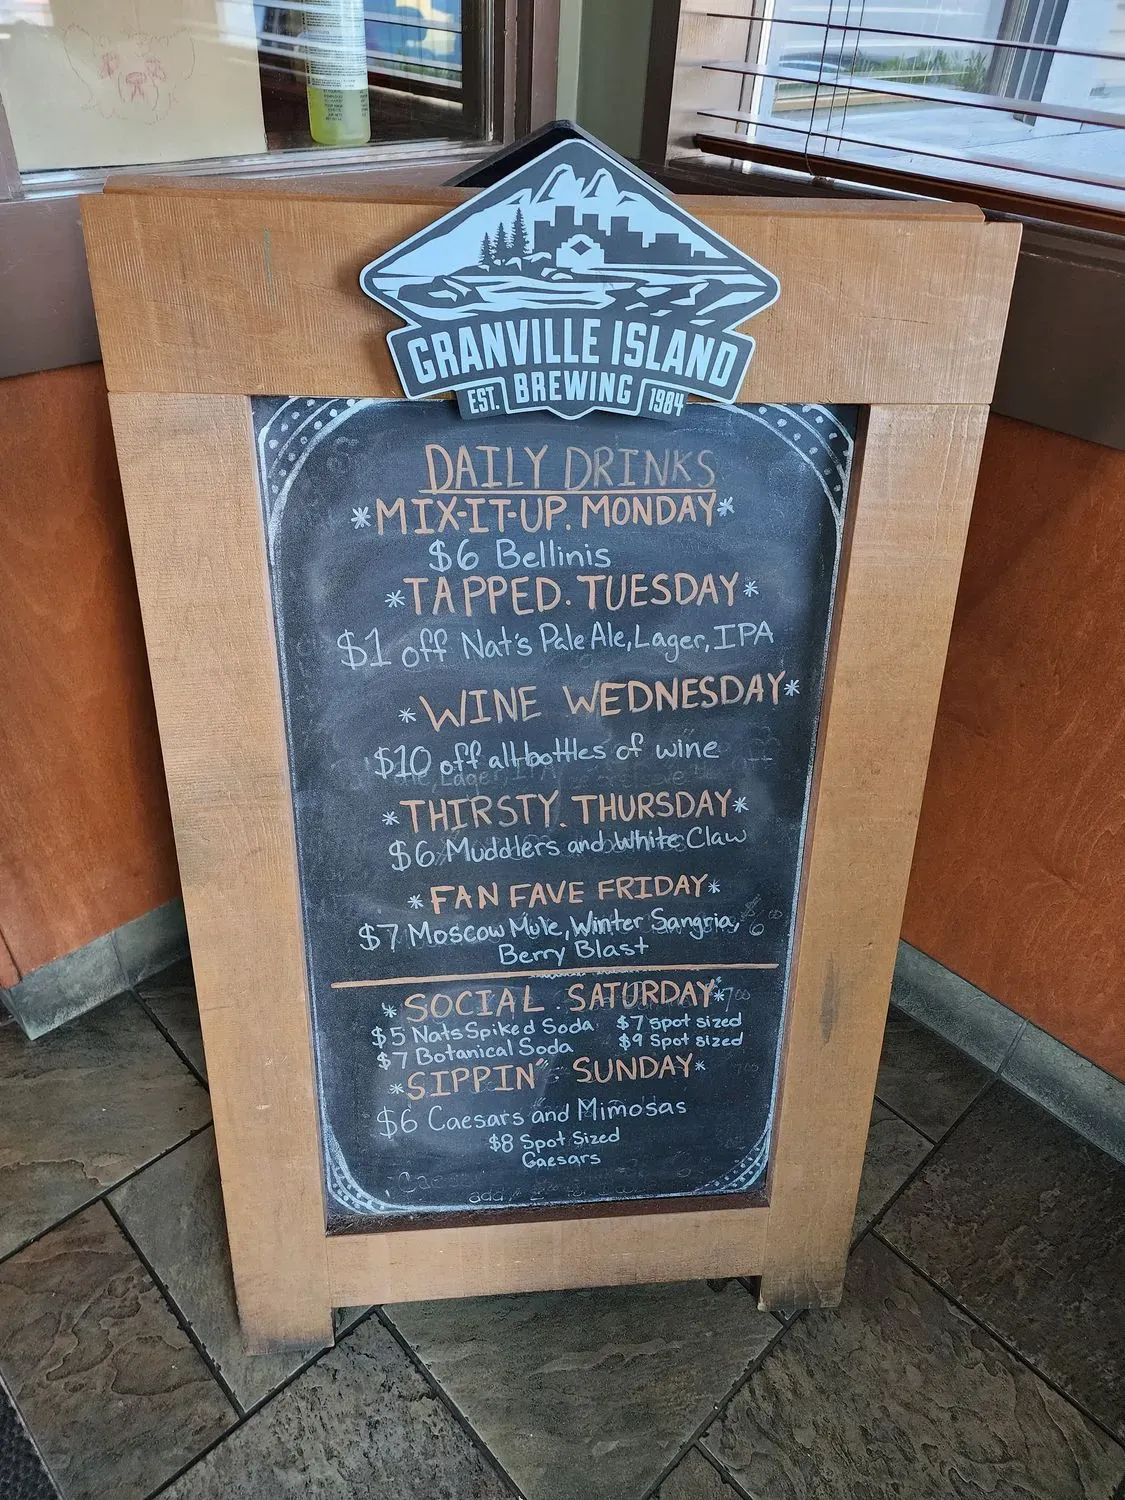 GRANVILLE ISLAND
EST. BREWING 1984
DAILY DRINKS
*MIX-IT-UP. MONDAY*
$6 Bellinis
*TAPPED. TUESDAY*
$1 off Nat's Pale Ale, Lager, IPA
*WINE WEDNESDAY*
$10 off all bottles of wine
*THIRSTY. THURSDAY*
$6 Muddlers and White Claw
*FAN FAVE FRIDAY*
$7 Moscow Mule, Winter Sangria,
Berry Blast
*SOCIAL SATURDAY*
$5 Nats Spiked Soda $7 spot sized
$7 Botanical Soda $9 Spot sized
*SIPPIN' SUNDAY*
$6 Caesars and Mimosas
$8 Spot Sized
Caesars